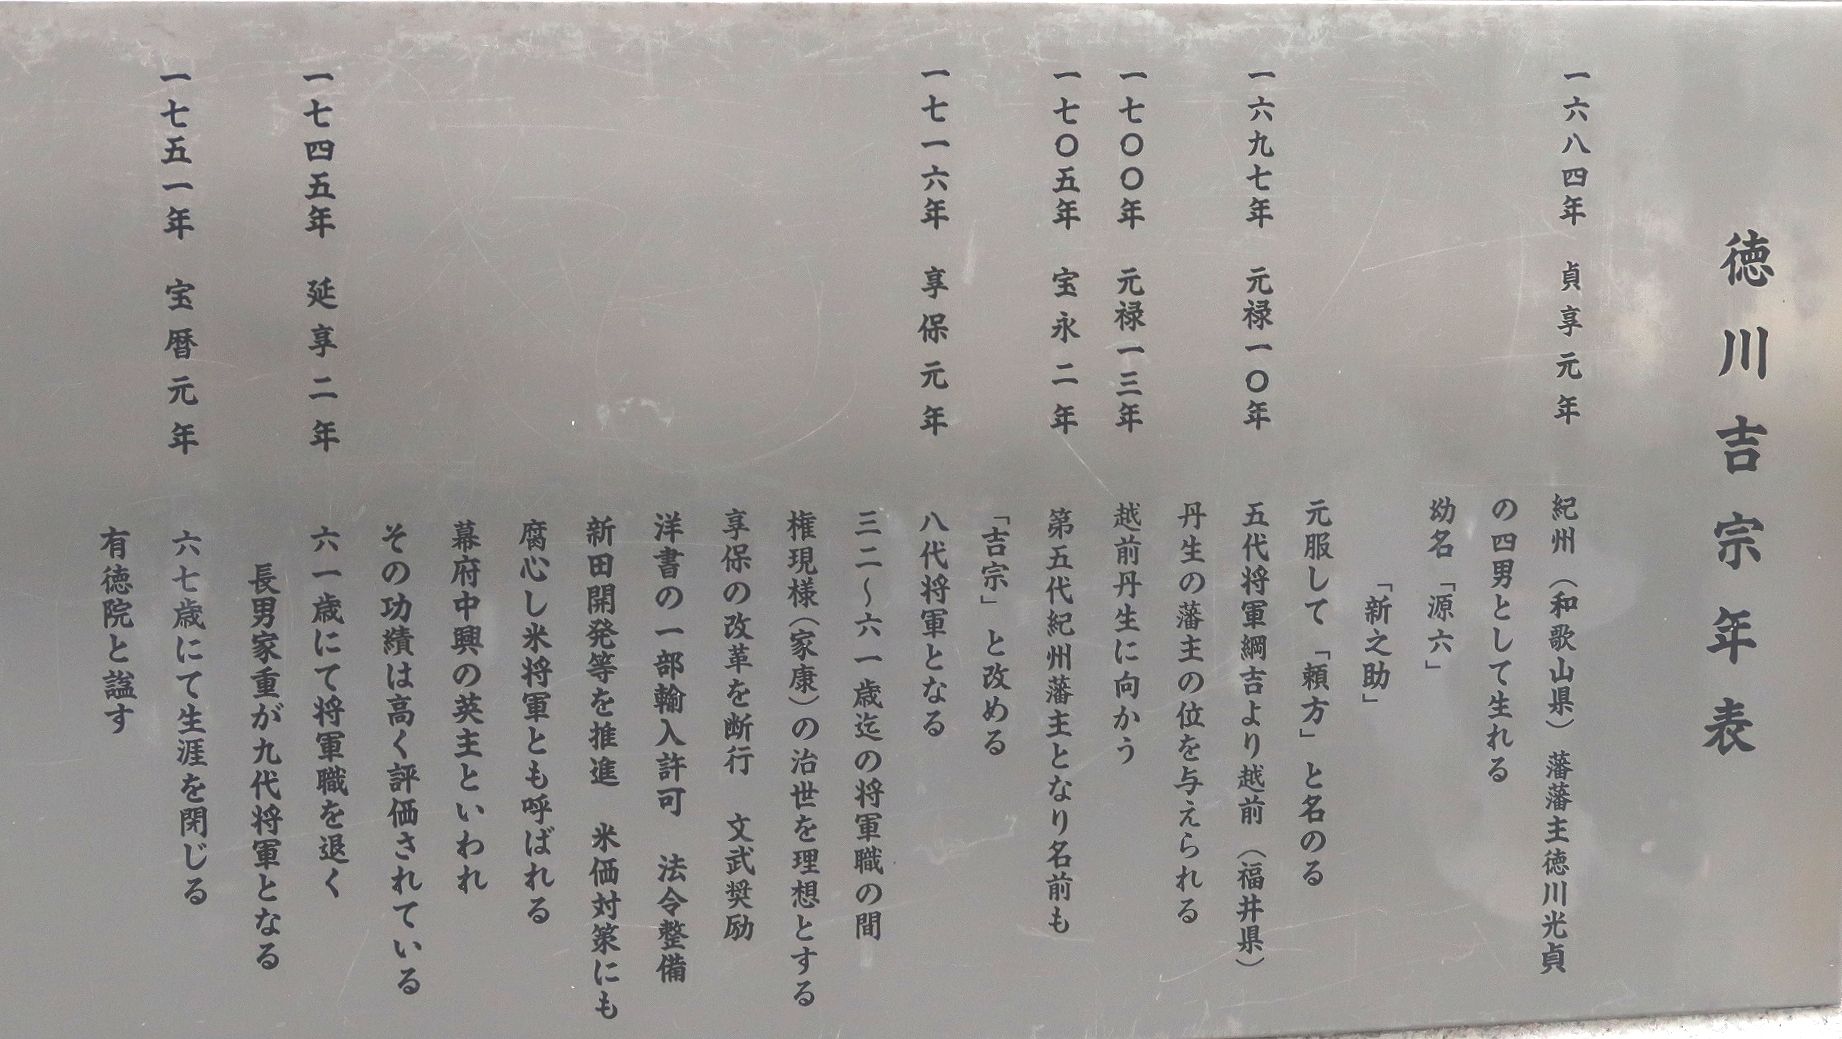 徳川吉宗年表
一六八四年　貞享元年　紀州（和歌山県）藩藩主徳川光貞
の四男として生れる
幼名「源六」
「新之助」
元服して「頼方」と名のる
一六九七年　元禄一〇年　五代将軍綱吉より越前（福井県）
丹生の藩主の位を与えられる
一七〇〇年　元禄一三年　越前丹生に向かう
一七〇五年　宝永二年　第五代紀州藩主となり名前も
「吉宗」と改める
一七一六年　享保元年　八代将軍となる
三二〜六一歳迄の将軍職の間
権現様（家康）の治世を理想とする
享保の改革を断行　文武奨励
洋書の一部輸入許可　法令整備
新田開発等を推進　米価対策にも
腐心し米将軍とも呼ばれる
幕府中興の英主といわれ
その功績は高く評価されている
一七四五年　延享二年　六一歳にて将軍職を退く
長男家重が九代将軍となる
一七五一年　宝暦元年　六七歳にて生涯を閉じる
有徳院と謚す